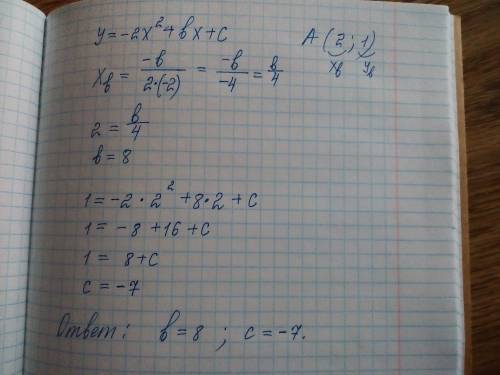 y = -2x² + bx + c
A (2 ; 1)
xв yв
xв = -b/(2·(-2)) = -b/-4 = b/4
2 = b/4
b = 8
1 = -2 · 2² + 8·2 + c
1 = -8 + 16 + c
1 = 8 + c
c = -7
Ответ: b = 8 ; c = -7.